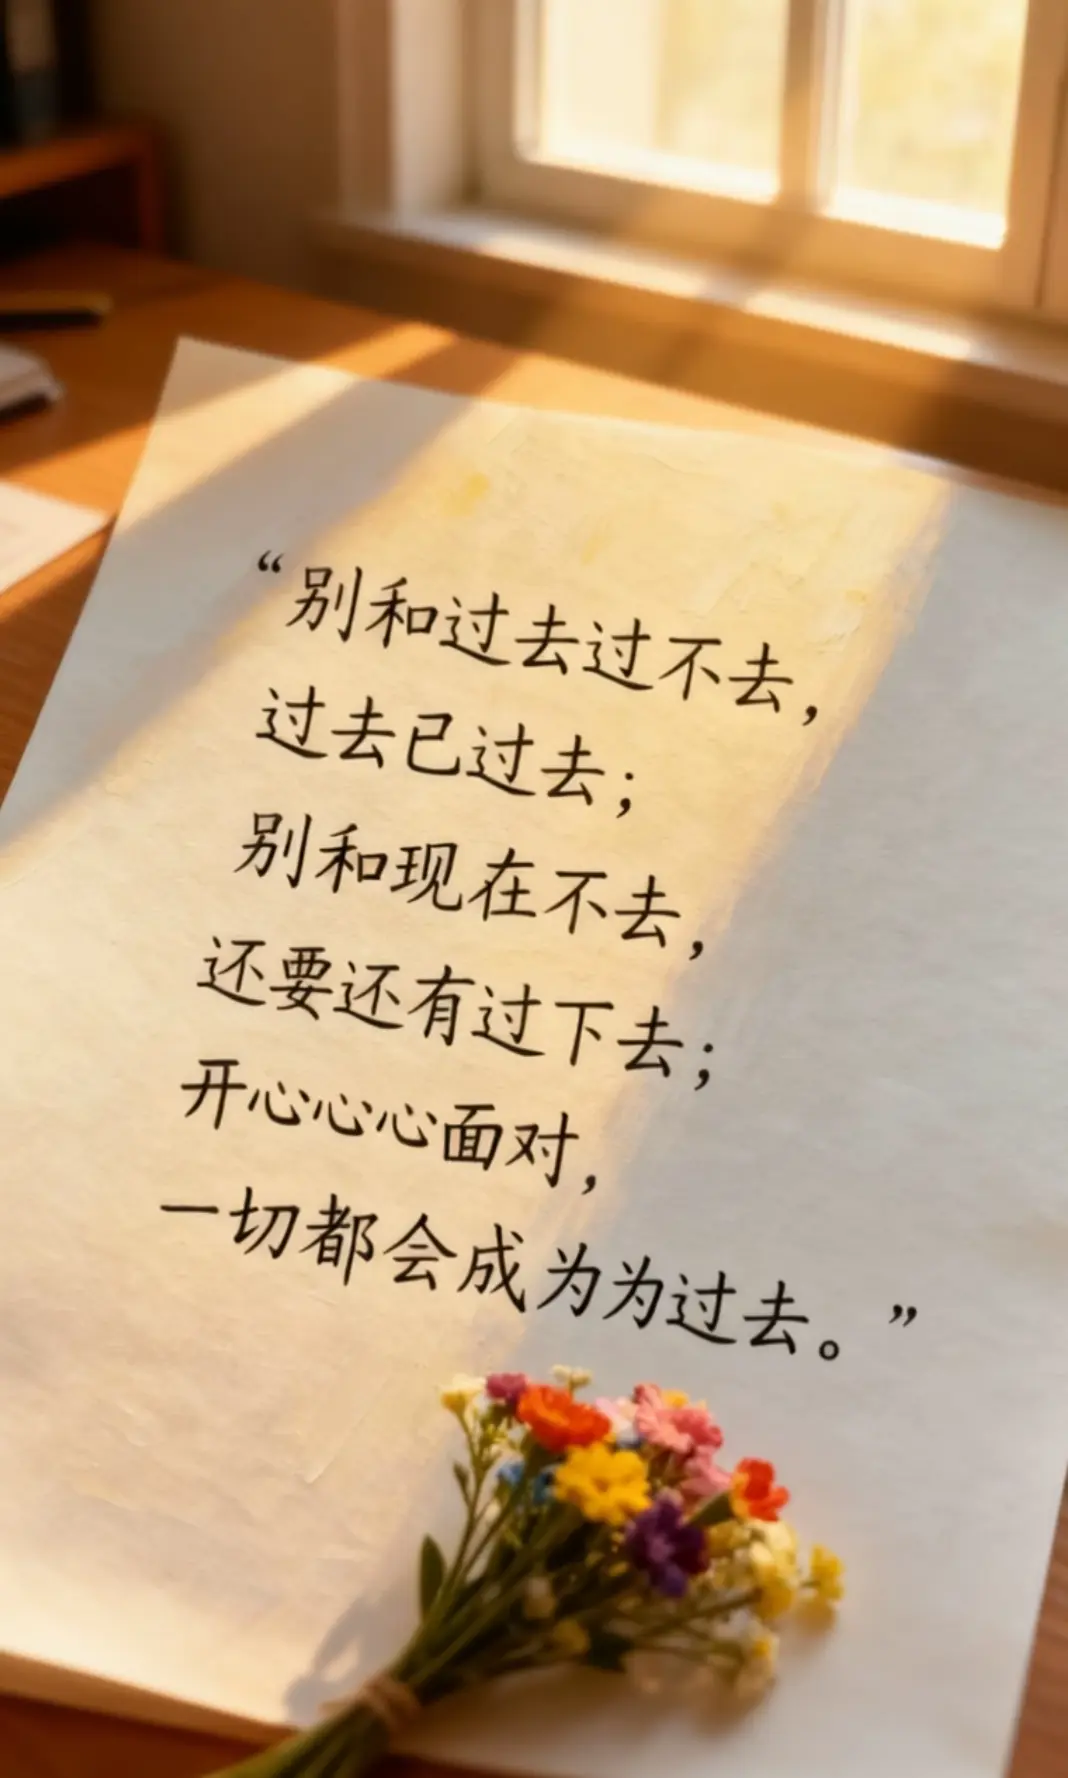 “别和过去过不去，
过去已过去；
别和现在不去，
还要还有过下去；
开心心心面对，
一切都会成为为过去。”